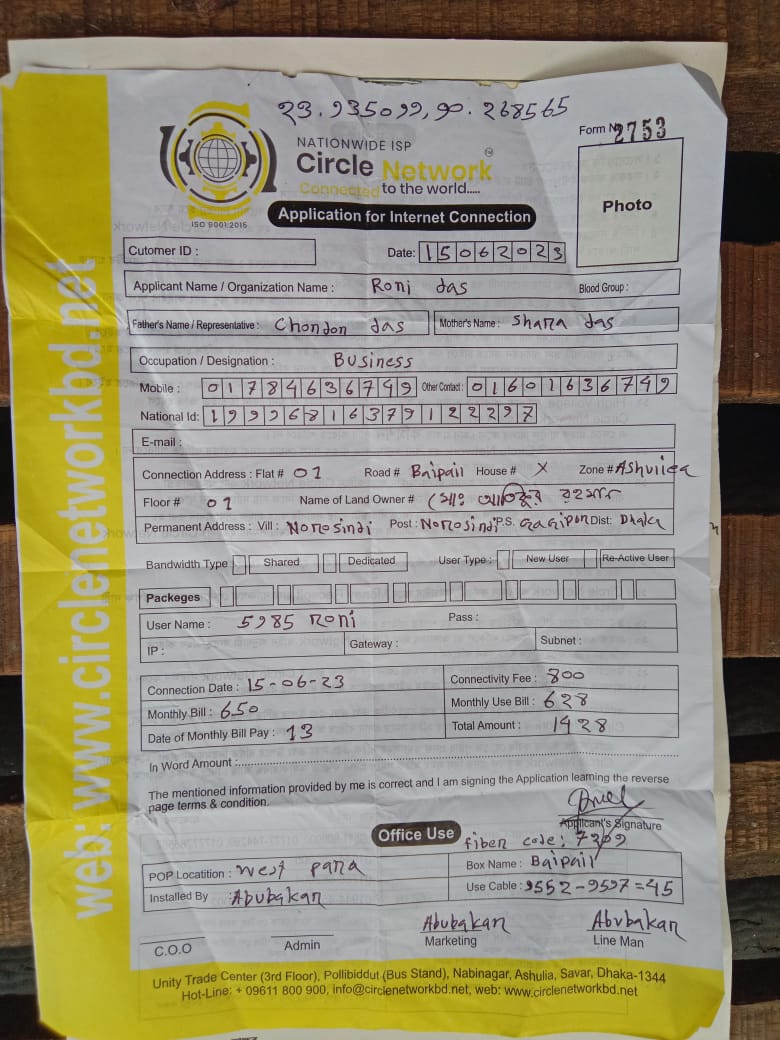 23.935099,90.268565
Form No 2753
NATIONWIDE ISP
Circle Network
Connected to the world.....
ISO 9001:2015
Photo
Application for Internet Connection
Cutomer ID :
Date: 15062023
Applicant Name / Organization Name : Roni das
Blood Group :
Father's Name / Representative : Chondon das
Mother's Name : Shana das
Occupation / Designation : Business
Mobile : 01784636749 Other Contact : 01601636749
National Id: 19996816379122297
E-mail :
Connection Address : Flat # 01 Road # Baipail House # X Zone # Ashulia
Floor # 01 Name of Land Owner # মোঃ আতিকুর রহমান
Permanent Address : Vill : Norosindi Post : Norosindi P.S. Gazipur Dist: Dhaka
Bandwidth Type Shared Dedicated User Type : New User Re-Active User
Packeges
User Name : 5985 Roni Pass :
IP : Gateway : Subnet :
Connection Date : 15-06-23 Connectivity Fee : 800
Monthly Bill : 650 Monthly Use Bill : 628
Date of Monthly Bill Pay : 13 Total Amount : 1428
In Word Amount :
The mentioned information provided by me is correct and I am signing the Application learning the reverse
page terms & condition.
Applicant's Signature
Office Use
fiber code: 7309
POP Locatition : west para Box Name : Baipail
Installed By Abubakar Use Cable : 9552-9597=45
Abubakar Abubakar
C.O.O Admin Marketing Line Man
Unity Trade Center (3rd Floor), Pollibiddut (Bus Stand), Nabinagar, Ashulia, Savar, Dhaka-1344
Hot-Line: + 09611 800 900, info@circlenetworkbd.net, web: www.circlenetworkbd.net
web: www.circlenetworkbd.net